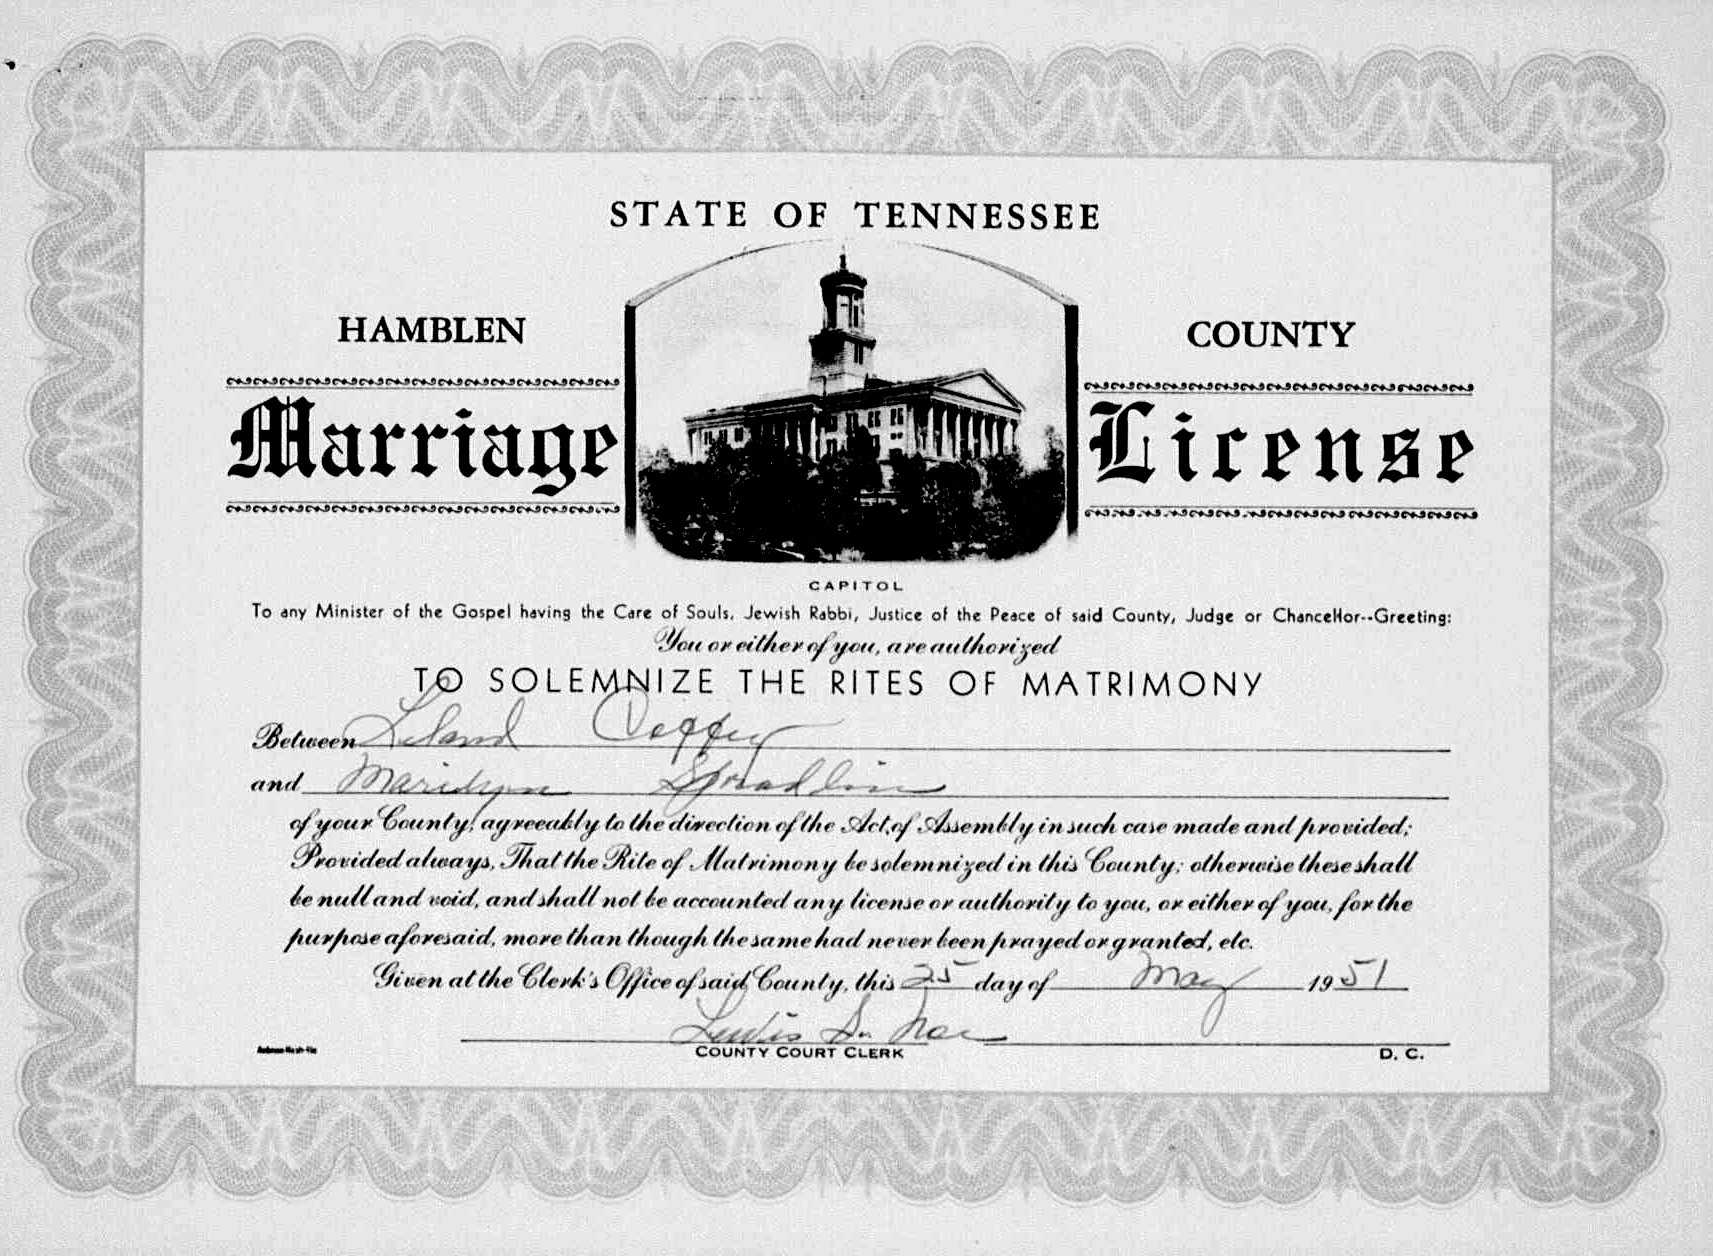 STATE OF TENNESSEE
HAMBLEN COUNTY
Marriage License
CAPITOL
To any Minister of the Gospel having the Care of Souls, Jewish Rabbi, Justice of the Peace of said County, Judge or Chancellor--Greeting:
You or either of you, are authorized
TO SOLEMNIZE THE RITES OF MATRIMONY
Between Leland Coffey
and Marilynn Spradlin
of your County, agreeably to the direction of the Act, of Assembly in such case made and provided;
Provided always, That the Rite of Matrimony be solemnized in this County; otherwise these shall
be null and void, and shall not be accounted any license or authority to you, or either of you, for the
purpose aforesaid, more than though the same had never been prayed or granted, etc.
Given at the Clerk's Office of said County, this 25 day of May 1951
COUNTY COURT CLERK D. C.